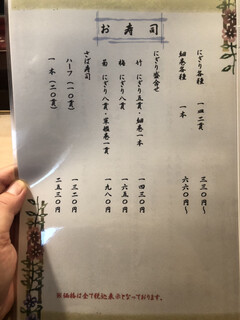 お寿司
にぎり各種 一、二貫 三三〇円～
細巻各種 一本 六六〇円～
にぎり盛合せ
竹 にぎり五貫・細巻一本 一四三〇円
梅 にぎり八貫 一六五〇円
菊 にぎり八貫・軍艦巻一貫 一九八〇円
さば寿司
ハーフ(一〇貫) 一三二〇円
一本(二〇貫) 二五三〇円
※価格は全て税込表示となっております。